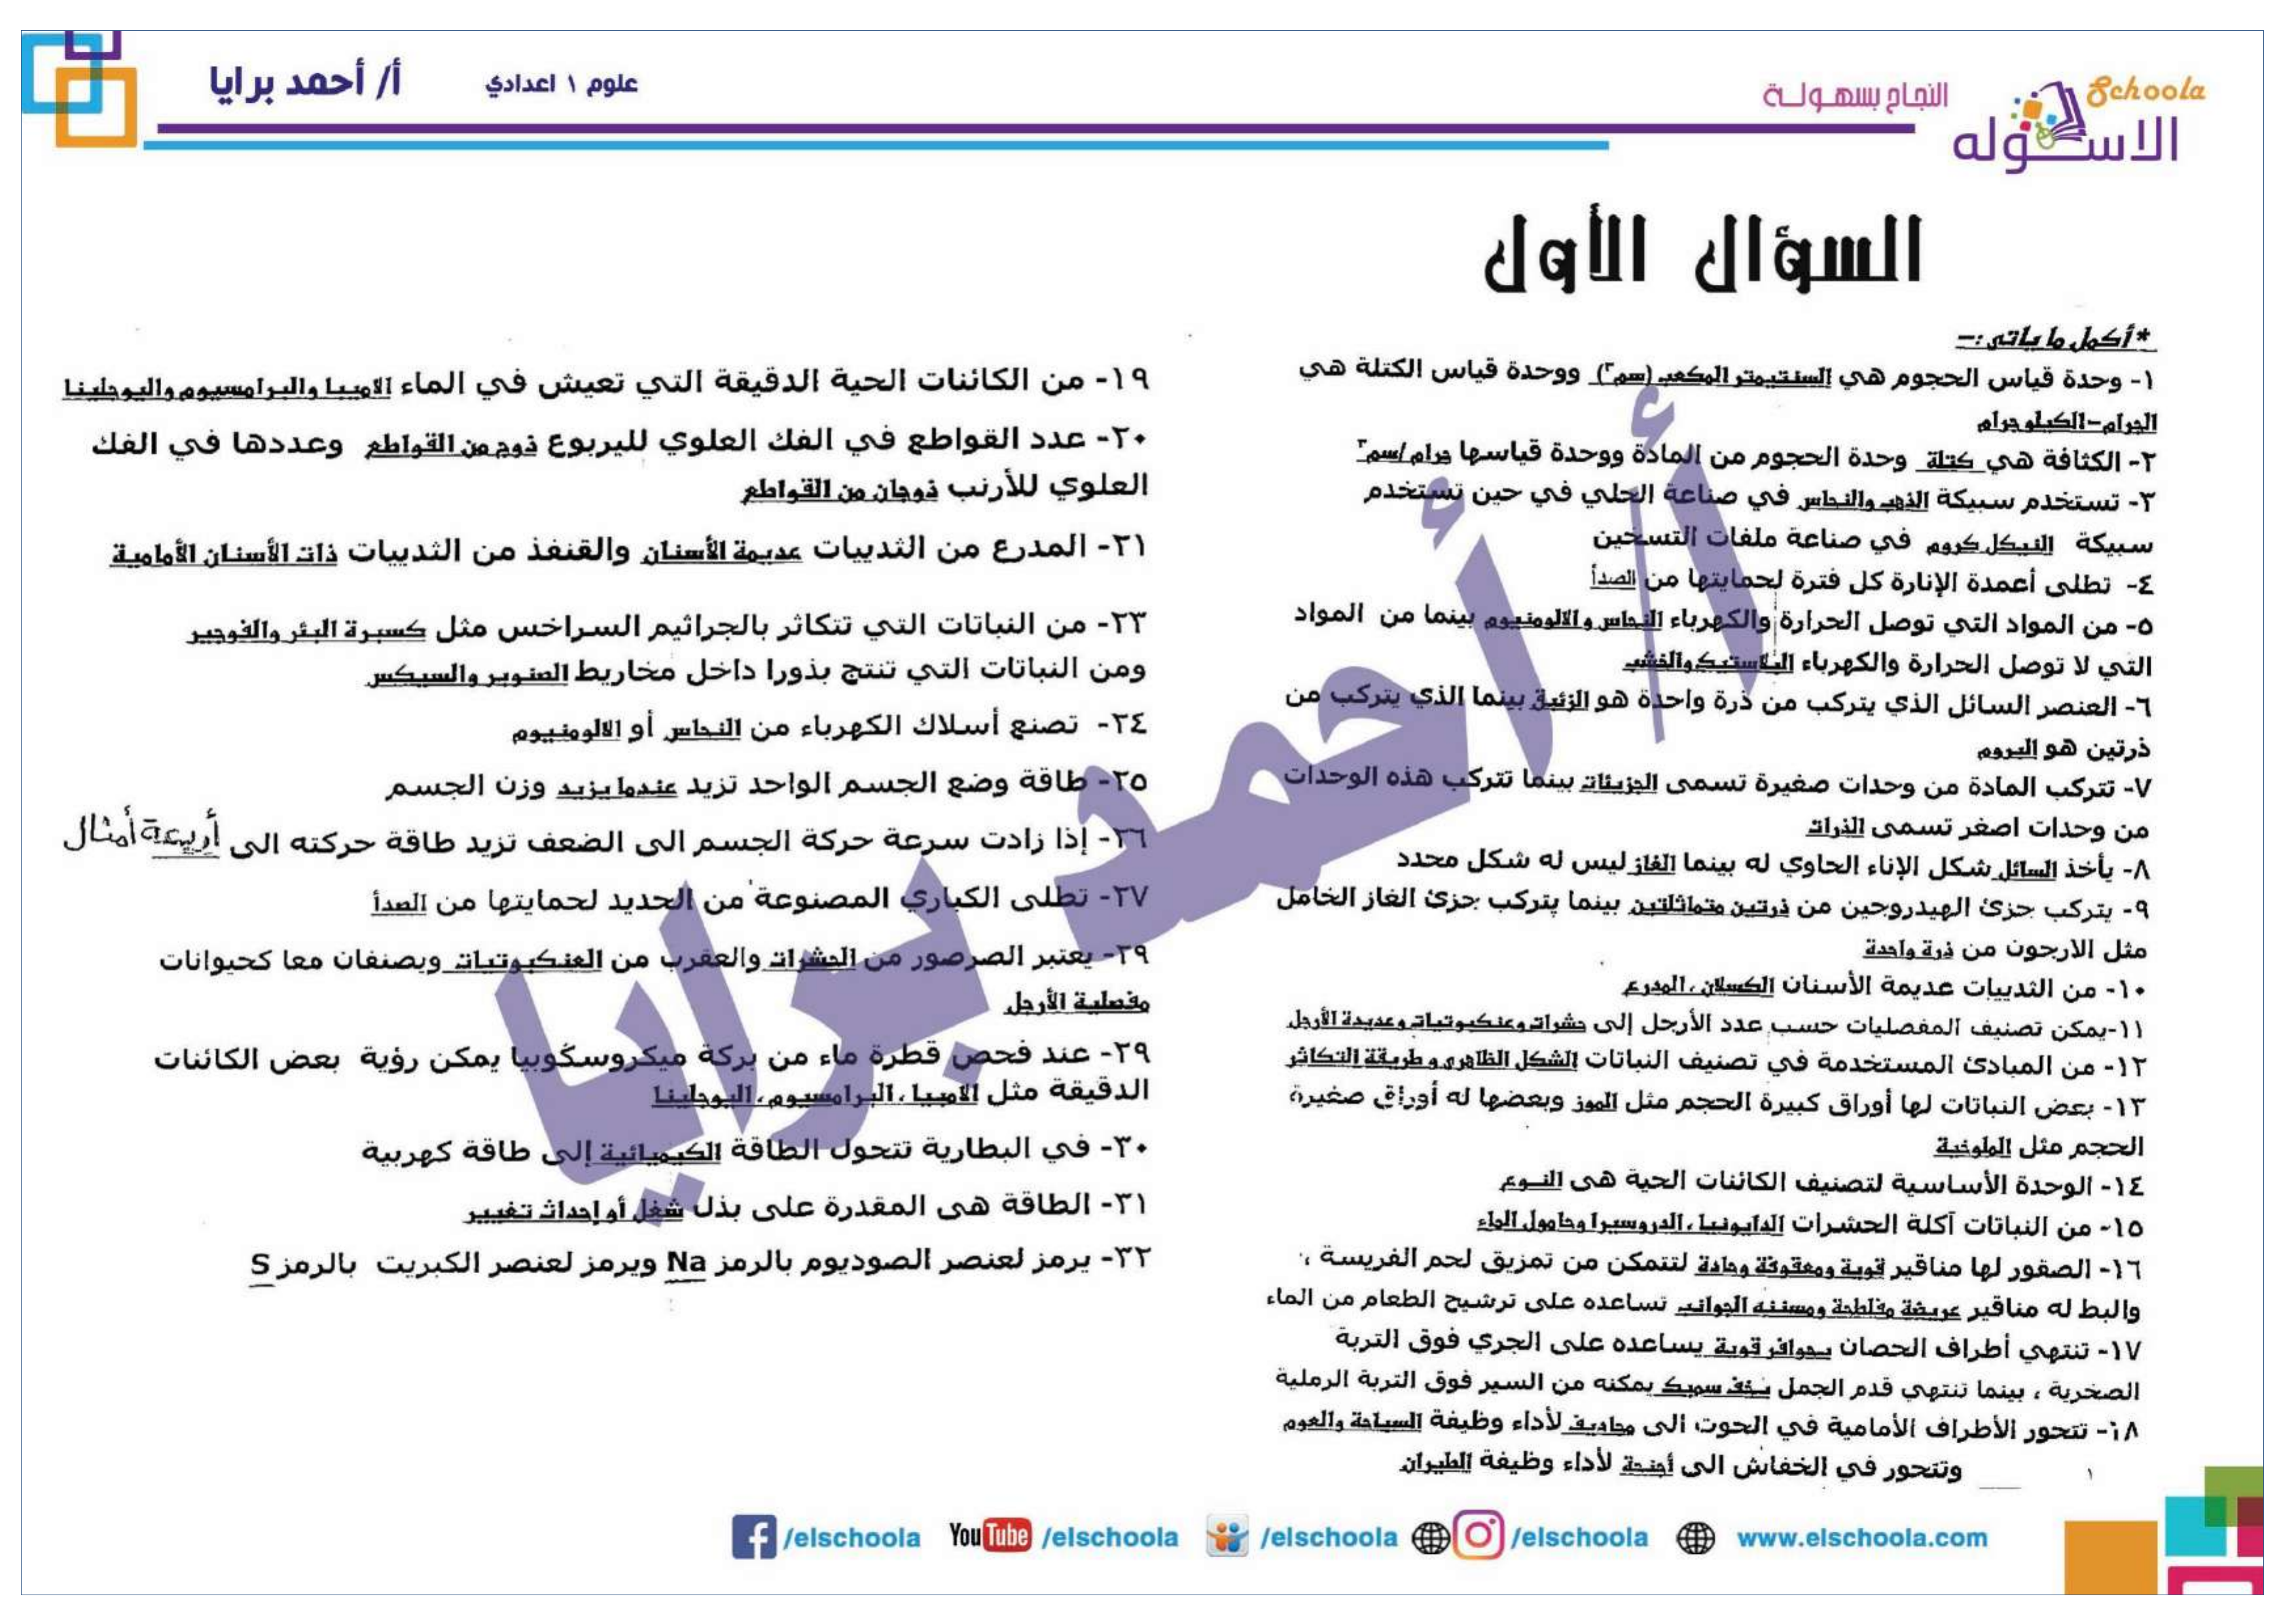 أ/ أحمد برايا
علوم ١ اعدادي
النجاح بسهولة
Schoola
الاسكوله
السؤال الأول
*أكمل ما يأتى :-
١- وحدة قياس الحجوم هي السنتيمتر المكعب (سم٣) ووحدة قياس الكتلة هي
الجرام-الكيلوجرام
٢- الكثافة هي كتلة وحدة الحجوم من المادة ووحدة قياسها جرام/سم٣
٣- تستخدم سبيكة الذهب والنحاس في صناعة الحلي في حين تستخدم
سبيكة النيكل كروم في صناعة ملفات التسخين
٤- تطلى أعمدة الإنارة كل فترة لحمايتها من الصدأ
٥- من المواد التي توصل الحرارة والكهرباء النحاس والالومنيوم بينما من المواد
التي لا توصل الحرارة والكهرباء البلاستيك والخشب
٦- العنصر السائل الذي يتركب من ذرة واحدة هو الزئبق بينما الذي يتركب من
ذرتين هو البروم
٧- تتركب المادة من وحدات صغيرة تسمى الجزيئات بينما تتركب هذه الوحدات
من وحدات اصغر تسمى الذرات
٨- يأخذ السائل شكل الإناء الحاوي له بينما الغاز ليس له شكل محدد
٩- يتركب جزئ الهيدروجين من ذرتين متماثلتين بينما يتركب جزئ الغاز الخامل
مثل الارجون من ذرة واحدة
١٠- من الثدييات عديمة الأسنان الكسلان ، المدرع
١١-يمكن تصنيف المفصليات حسب عدد الأرجل إلى حشرات وعنكبوتيات وعديدة الأرجل
١٢- من المبادئ المستخدمة في تصنيف النباتات الشكل الظاهري وطريقة التكاثر
١٣- بعض النباتات لها أوراق كبيرة الحجم مثل الموز وبعضها له أوراق صغيرة
الحجم مثل الملوخية
١٤- الوحدة الأساسية لتصنيف الكائنات الحية هى النـوع
١٥- من النباتات آكلة الحشرات الدايونيا ، الدروسيرا وحامول الماء
١٦- الصقور لها مناقير قوية ومعقوفة وحادة لتتمكن من تمزيق لحم الفريسة ،
والبط له مناقير عريضة مفلطحة ومسننه الجوانب تساعده على ترشيح الطعام من الماء
١٧- تنتهي أطراف الحصان بحوافر قوية يساعده على الجري فوق التربة
الصخرية ، بينما تنتهي قدم الجمل بخف سميك يمكنه من السير فوق التربة الرملية
١٨- تتحور الأطراف الأمامية في الحوت الى مجاديف لأداء وظيفة السباحة والعوم
وتتحور في الخفاش الى أجنحة لأداء وظيفة الطيران
١
١٩- من الكائنات الحية الدقيقة التي تعيش في الماء الاميبا والبرامسيوم واليوجلينا
٢٠- عدد القواطع في الفك العلوي لليربوع ذوج من القواطع وعددها في الفك
العلوي للأرنب ذوجان من القواطع
٢١- المدرع من الثدييات عديمة الأسنان والقنفذ من الثدييات ذات الأسنان الأمامية
٢٣- من النباتات التي تتكاثر بالجراثيم السراخس مثل كسبرة البئر والفوجير
ومن النباتات التي تنتج بذورا داخل مخاريط الصنوبر والسيكس
٢٤- تصنع أسلاك الكهرباء من النحاس أو الالومنيوم
٢٥- طاقة وضع الجسم الواحد تزيد عندما يزيد وزن الجسم
٢٦- إذا زادت سرعة حركة الجسم الى الضعف تزيد طاقة حركته الى أربعة أمثال
٢٧- تطلى الكباري المصنوعة من الحديد لحمايتها من الصدأ
٢٩- يعتبر الصرصور من الحشرات والعقرب من العنكبوتيات ويصنفان معا كحيوانات
مفصلية الأرجل
٢٩- عند فحص قطرة ماء من بركة ميكروسكوبيا يمكن رؤية بعض الكائنات
الدقيقة مثل الاميبا ، البرامسيوم ، اليوجلينا
٣٠- في البطارية تتحول الطاقة الكيميائية إلى طاقة كهربية
٣١- الطاقة هى المقدرة على بذل شغل أو إحداث تغيير
٣٢- يرمز لعنصر الصوديوم بالرمز Na ويرمز لعنصر الكبريت بالرمز S
أ/ أحمد برايا
/elschoola YouTube /elschoola /elschoola /elschoola www.elschoola.com